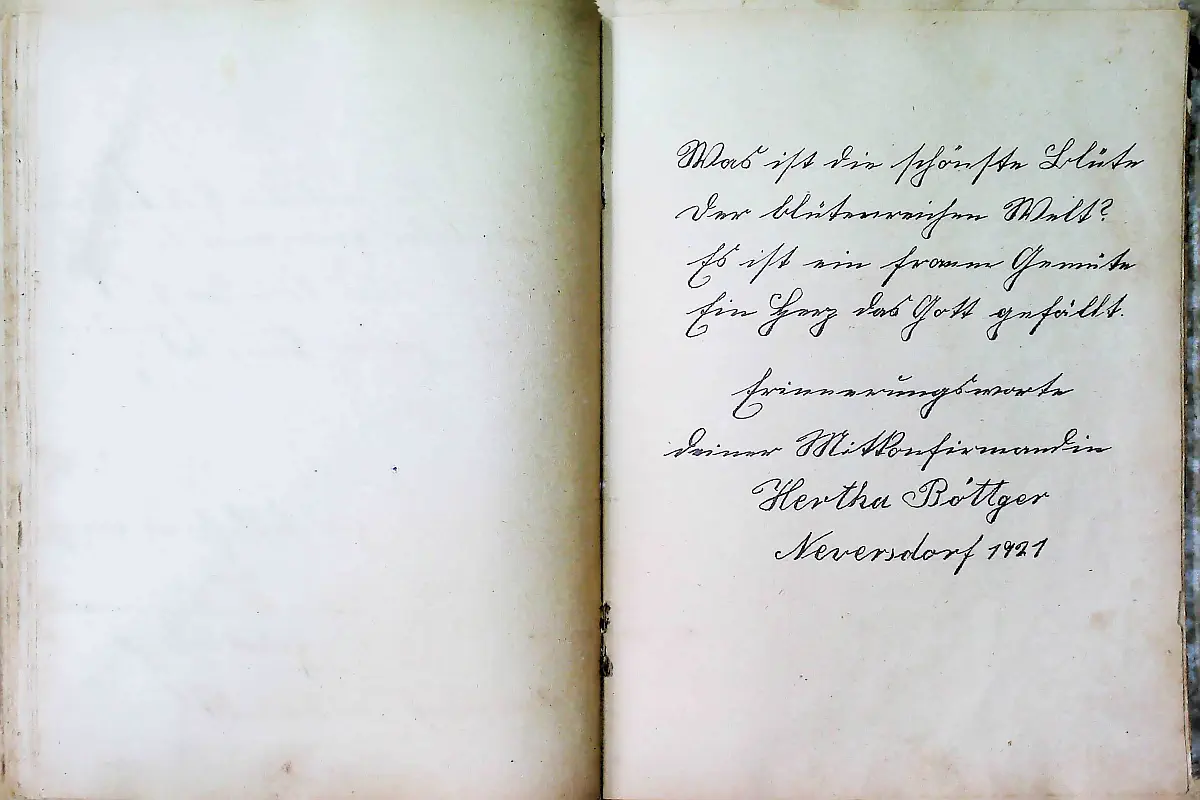 Was ist die schönste Blüte
Der blütenreichen Welt?
Es ist ein fromm Gemüte
Ein Herz das Gott gefällt.
Erinnerungsworte
deiner Mitkonfirmandin
Hertha Böttger
Neversdorf 1921